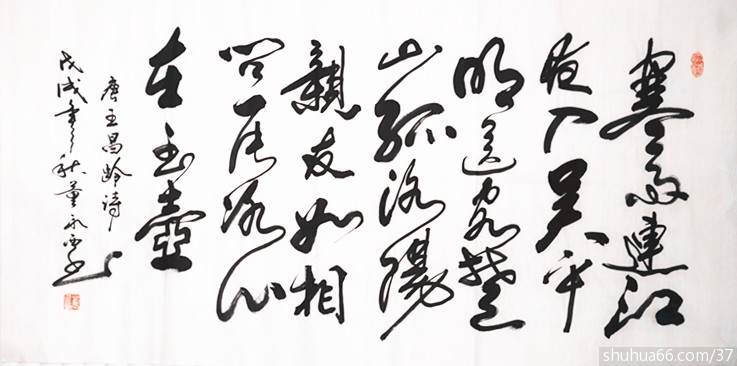 寒雨連江
夜入吴平
明送客楚
山孤洛陽
親友如相
问一片冰心
在玉壺
唐王昌龄诗
戊戌年秋董永
shuhua66.com/37